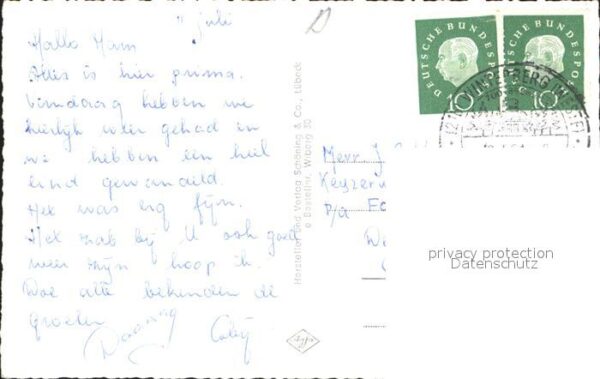 Juli
Hallo Mam
Alles is hier prima.
Vandaag hebben we
heerlijk weer gehad en
we hebben een heel
eind gewandeld.
Het was erg fijn.
Het zal bij U ook goed
weer zijn hoop ik.
Doe alle bekenden de
groeten
Daaaag
Hersteller und Verlag Schöning & Co., Lübeck
DEUTSCHE BUNDESPOST
10
DEUTSCHE BUNDESPO
10
WINTERBERG (WESTF)
Herr J
Keyzer
p/a
privacy protection
Datenschutz